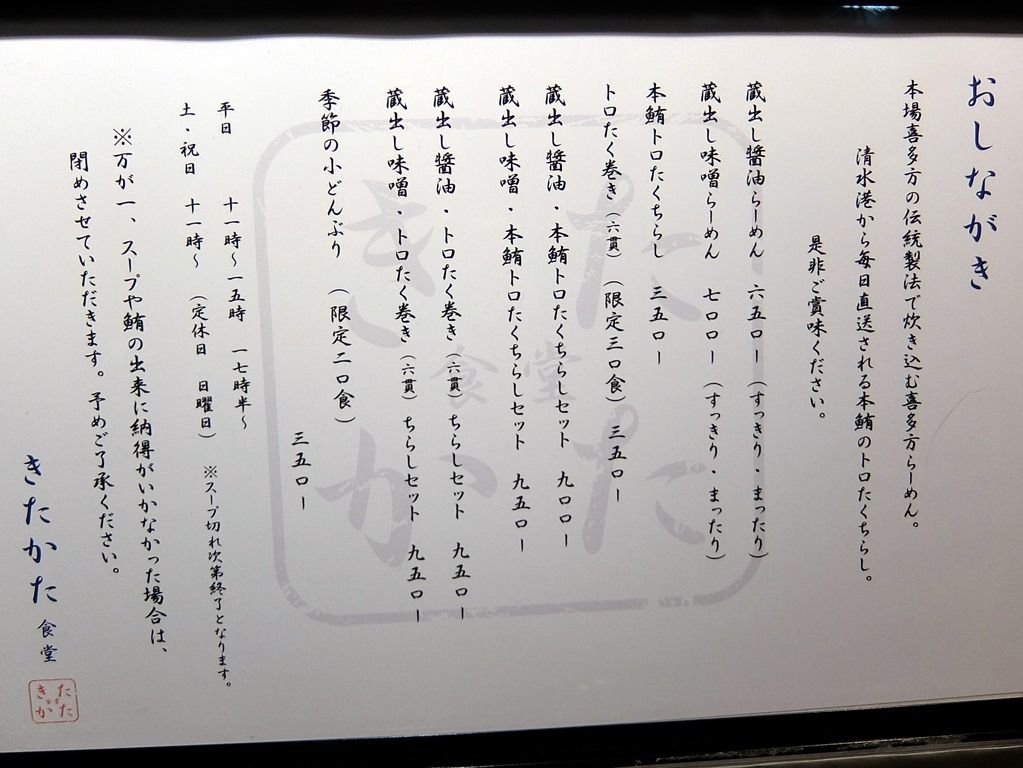 おしながき
本場喜多方の伝統製法で炊き込む喜多方らーめん。
清水港から毎日直送される本鮪のトロたくちらし。
是非ご賞味ください。
蔵出し醤油らーめん 六五〇ー (すっきり・まったり)
蔵出し味噌らーめん 七〇〇ー (すっきり・まったり)
本鮪トロたくちらし 三五〇ー
トロたく巻き(六貫) (限定三〇食) 三五〇ー
蔵出し醤油・本鮪トロたくちらしセット 九〇〇ー
蔵出し味噌・本鮪トロたくちらしセット 九五〇ー
蔵出し醤油・トロたく巻き(六貫)ちらしセット 九五〇ー
蔵出し味噌・トロたく巻き(六貫)ちらしセット 九五〇ー
季節の小どんぶり (限定二〇食)
三五〇ー
平日 十一時〜一五時 一七時半〜
土・祝日 十一時〜 (定休日 日曜日) ※スープ切れ次第終了となります。
※万が一、スープや鮪の出来に納得がいかなかった場合は、
閉めさせていただきます。予めご了承ください。
きたかた 食堂
きたかた
きたかた
食堂